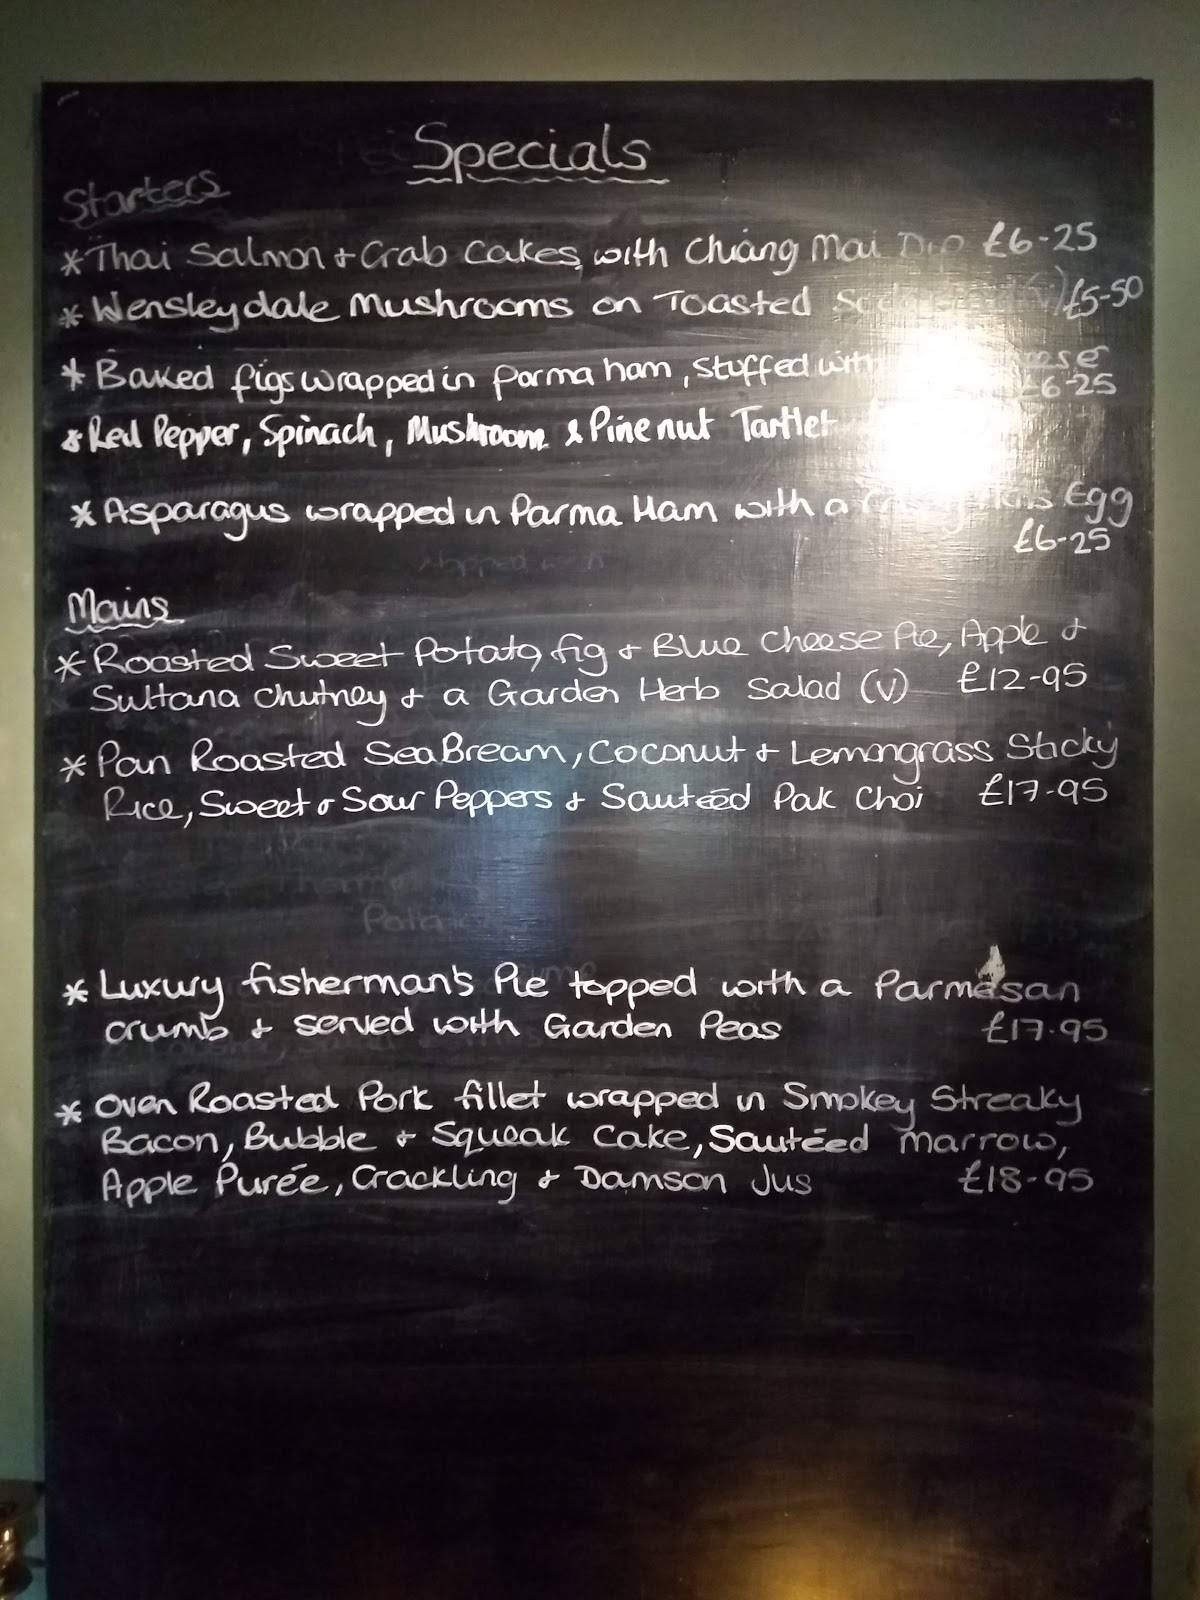 Specials
Starters
* Thai Salmon & Crab Cakes, with Chiang Mai Dip £6-25
* Wensleydale Mushrooms on Toasted £5-50
* Baked figs wrapped in parma ham, stuffed with
£6-25
* Red Pepper, Spinach, Mushroom & Pine nut Tartlet
* Asparagus wrapped in Parma Ham with a Egg
£6-25
Mains
* Roasted Sweet Potato, fig & Blue Cheese Pie, Apple &
Sultana chutney & a Garden Herb Salad (V) £12-95
* Pan Roasted Sea Bream, Coconut & Lemongrass Sticky
Rice, Sweet & Sour Peppers & Sautéed Pak Choi £17-95
* Luxury fisherman's Pie topped with a Parmesan
crumb & served with Garden Peas £17.95
* Oven Roasted Pork fillet wrapped in Smokey Streaky
Bacon, Bubble & Squeak Cake, Sautéed Marrow,
Apple Purée, Crackling & Damson Jus £18-95